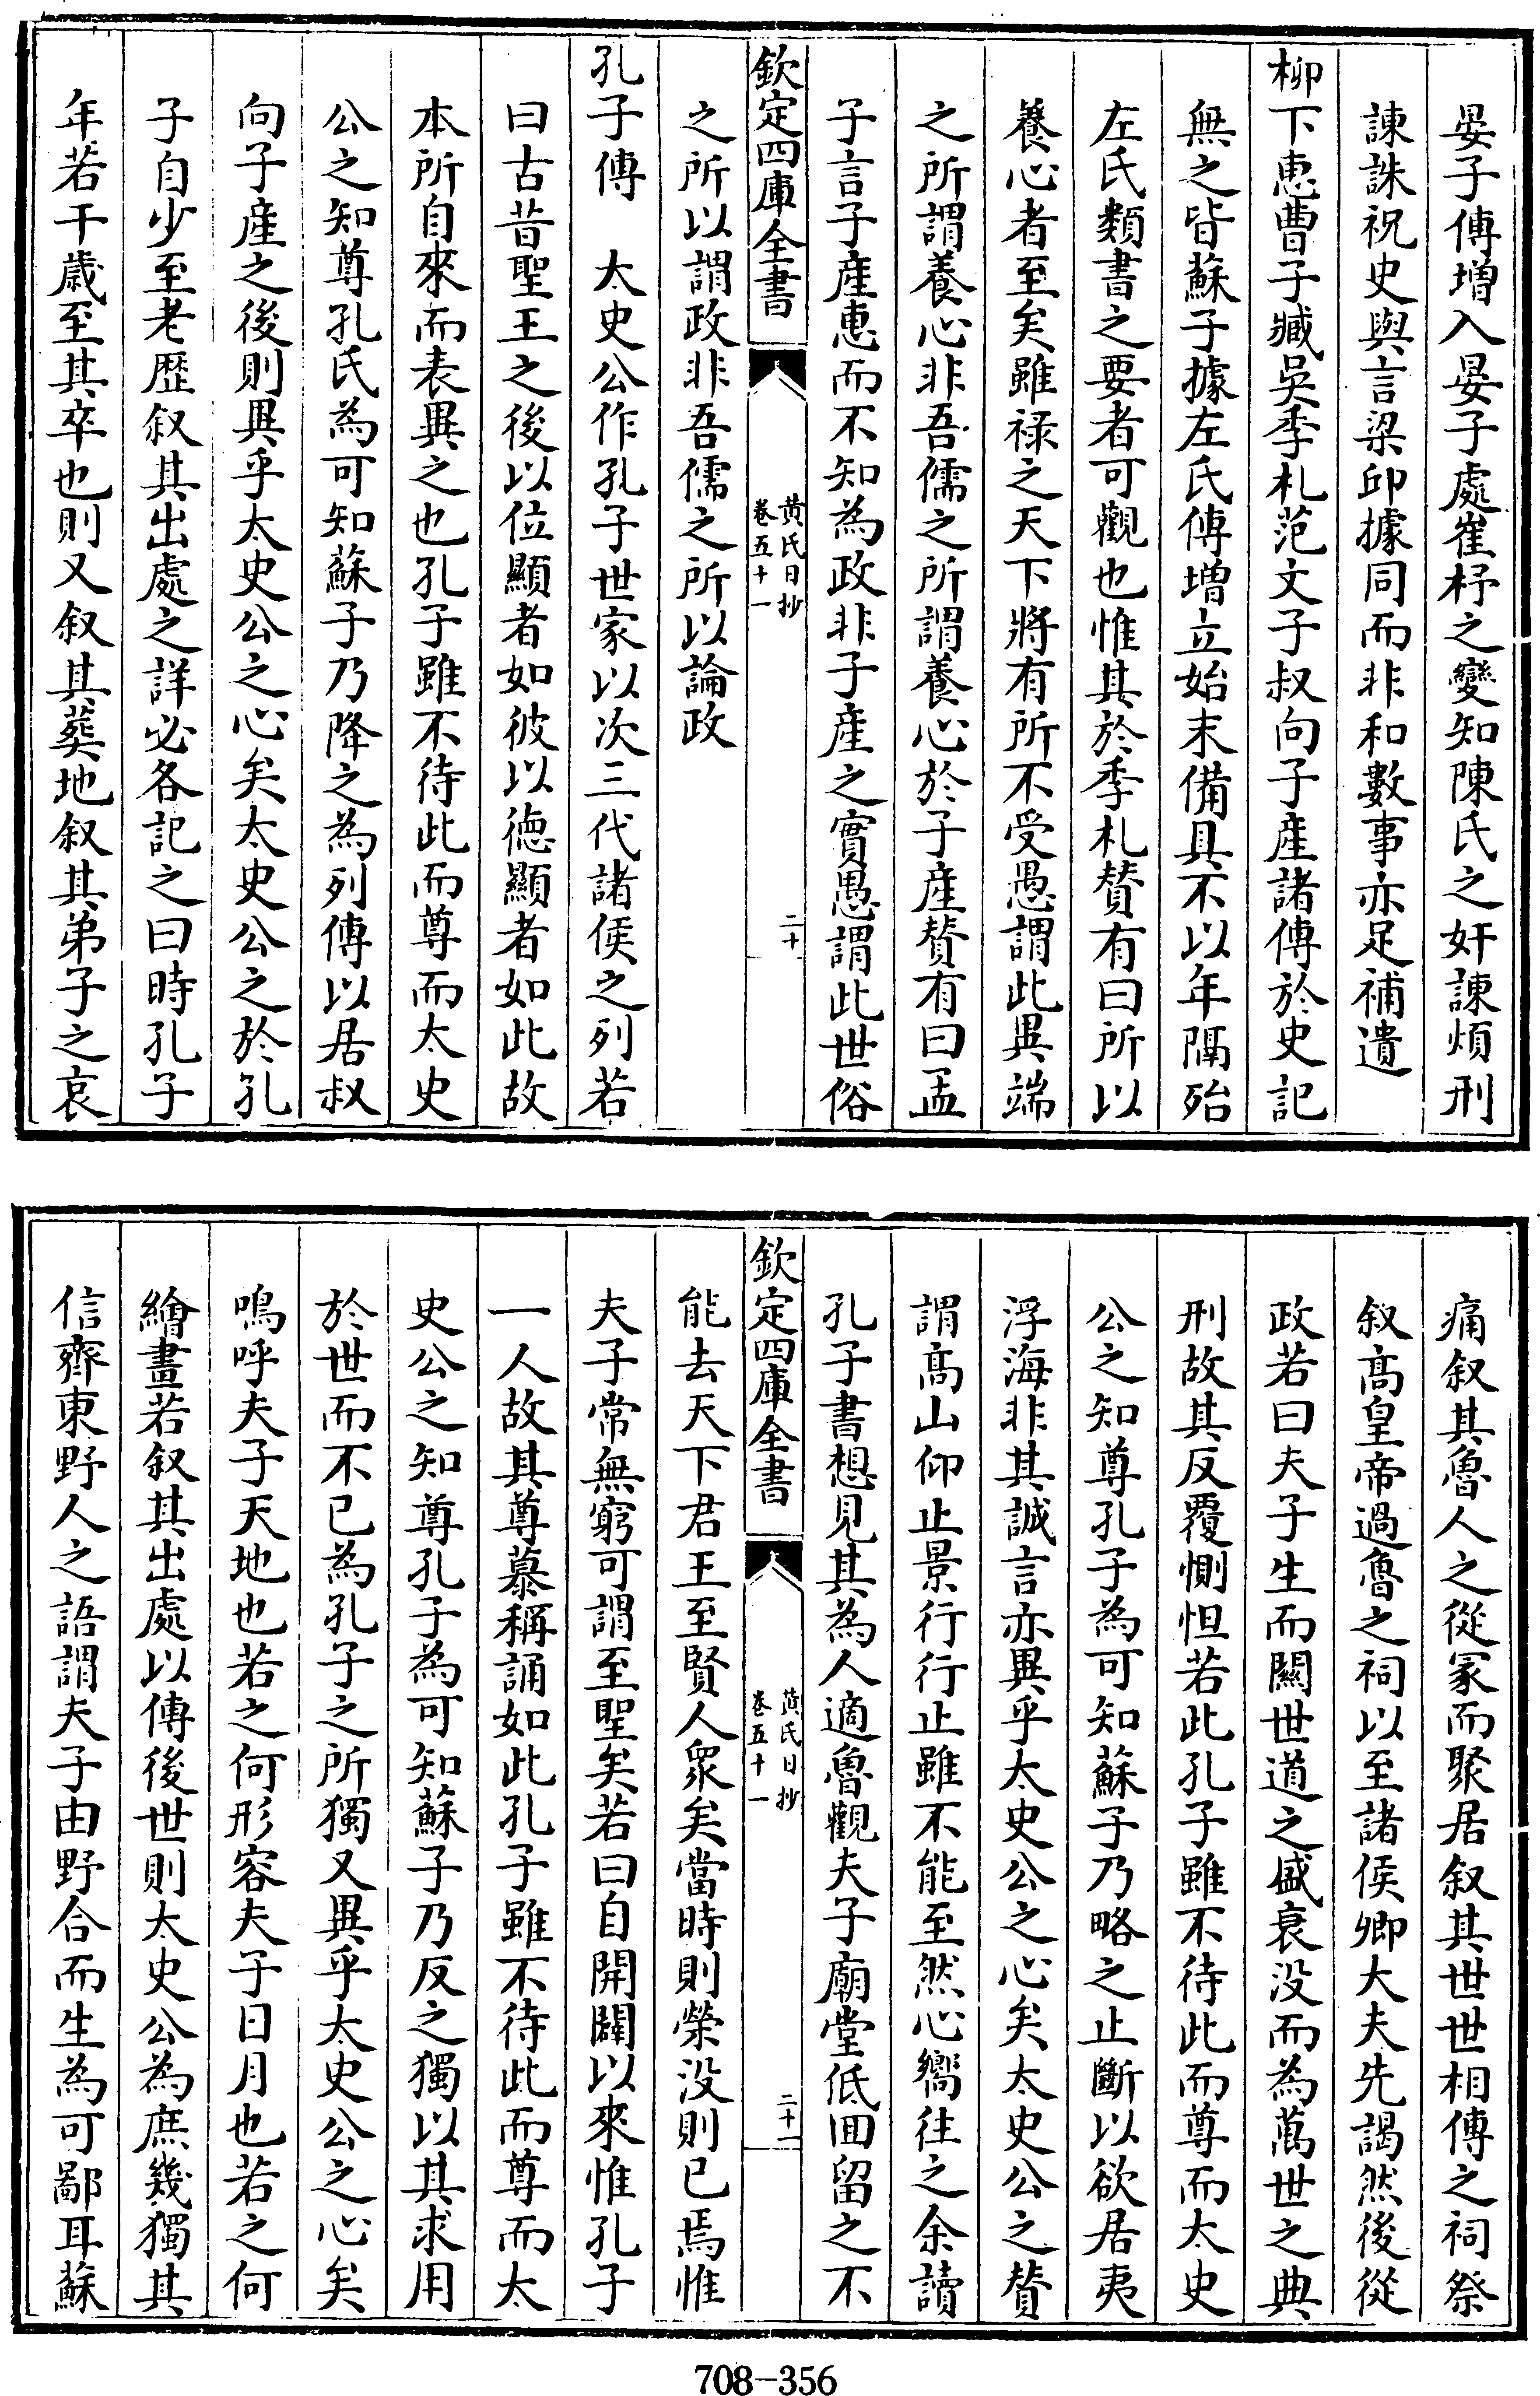 晏子傳增入晏子處崔杼之變知陳氏之奸諫煩刑
諫誅祝史與言梁邱據同而非和數事亦足補遺
柳下惠曹子臧吳季札范文子叔向子產諸傳於史記
無之皆蘇子據左氏傳增立始末備具不以年隔殆
左氏類書之要者可觀也惟其於季札賛有曰所以
養心者至矣雖祿之天下將有所不受愚謂此異端
之所謂養心非吾儒之所謂養心於子產賛有曰孟
子言子產惠而不知為政非子產之實愚謂此世俗
欽定四庫全書
黃氏日抄
卷五十一
二十
之所以謂政非吾儒之所以論政
孔子傳 太史公作孔子世家以次三代諸侯之列若
曰古昔聖王之後以位顯者如彼以德顯者如此故
本所自來而表異之也孔子雖不待此而尊而太史
公之知尊孔氏為可知蘇子乃降之為列傳以居叔
向子產之後則異乎太史公之心矣太史公之於孔
子自少至老歷叙其出處之詳必各記之曰時孔子
年若干歲至其卒也則又叙其葬地叙其弟子之哀
痛叙其魯人之從冢而聚居叙其世世相傳之祠祭
叙髙皇帝過魯之祠以至諸侯卿大夫先謁然後從
政若曰夫子生而關世道之盛衰没而為萬世之典
刑故其反覆惻怛若此孔子雖不待此而尊而太史
公之知尊孔子為可知蘇子乃略之止斷以欲居夷
浮海非其誠言亦異乎太史公之心矣太史公之賛
謂髙山仰止景行行止雖不能至然心嚮往之余讀
孔子書想見其為人適魯觀夫子廟堂低回留之不
欽定四庫全書
黃氏日抄
卷五十一
二十一
能去天下君王至賢人衆矣當時則榮没則已焉惟
夫子常無窮可謂至聖矣若曰自開闢以來惟孔子
一人故其尊慕稱誦如此孔子雖不待此而尊而太
史公之知尊孔子為可知蘇子乃反之獨以其求用
於世而不已為孔子之所獨又異乎太史公之心矣
嗚呼夫子天地也若之何形容夫子日月也若之何
繪畫若叙其出處以傳後世則太史公為庶幾獨其
信齊東野人之語謂夫子由野合而生為可鄙耳蘇
708-356